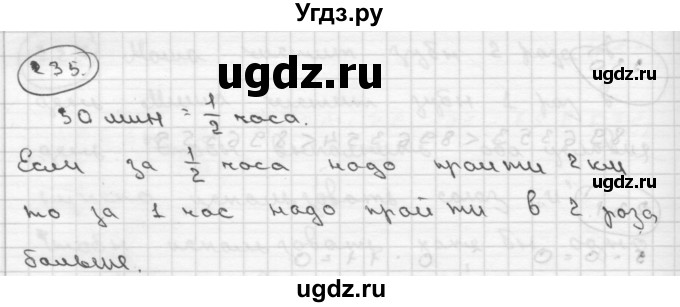 Угдз.ру
235.
ugdz.ru
30 мин = 1/2 часа.
Если за 1/2 часа надо пройти 2 км
то за 1 час надо пройти в 2 раза
больше.
ugdz.ru
ugdz.ru